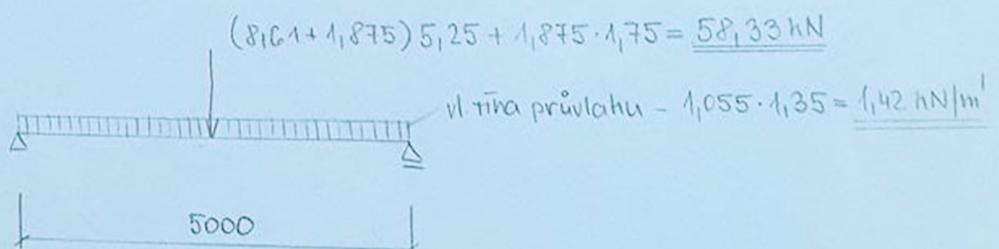 (8,61+1,875) 5,25 + 1,875 · 1,75 = 58,33 kN
vl. tíha průvlaku – 1,055 · 1,35 = 1,42 kN/m'
5000